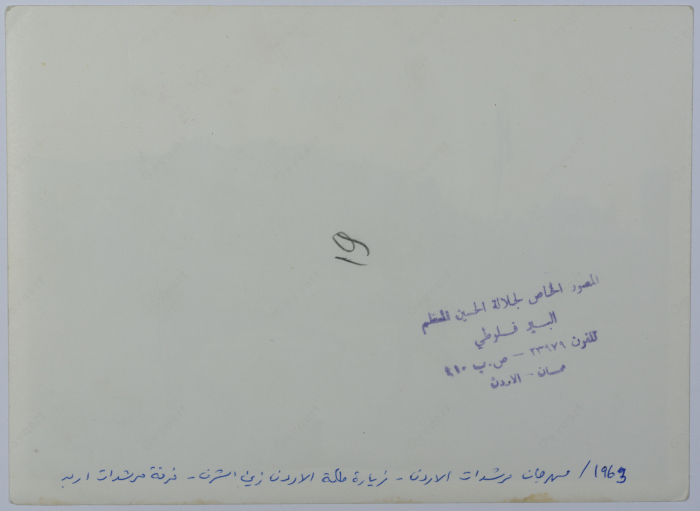 19
المصور الخاص لجلالة الحسين المعظم
البير فلوطي
تلفون ٢٣٩٧٩ - ص.ب ٤١٠
عمان - الاردن
1963 / مهرجان مرشدات الاردن - زيارة ملكة الاردن زين الشرف - فرقة مرشدات اربد